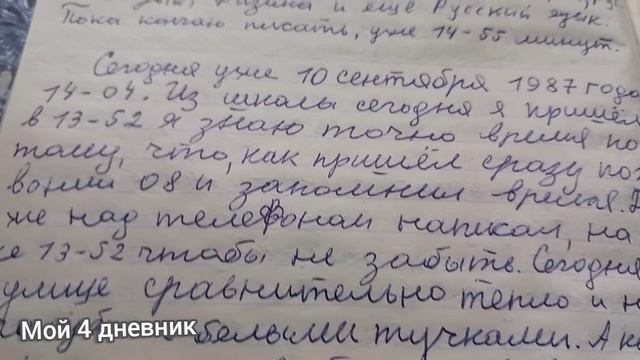 физика и ещё Русский язык.
Пока кончаю писать, уже 14-55 минут.
Сегодня уже 10 сентября 1987 года
14-04. Из школы сегодня я пришёл
в 13-52 я знаю точно время по
тому, что, как пришёл сразу поз
вонил 08 и запомнил время.
же над телефоном написал, на
13-52 чтобы не забыть. Сегодня
улице сравнительно тепло и н
белыми тучками. А к
Мой 4 дневник